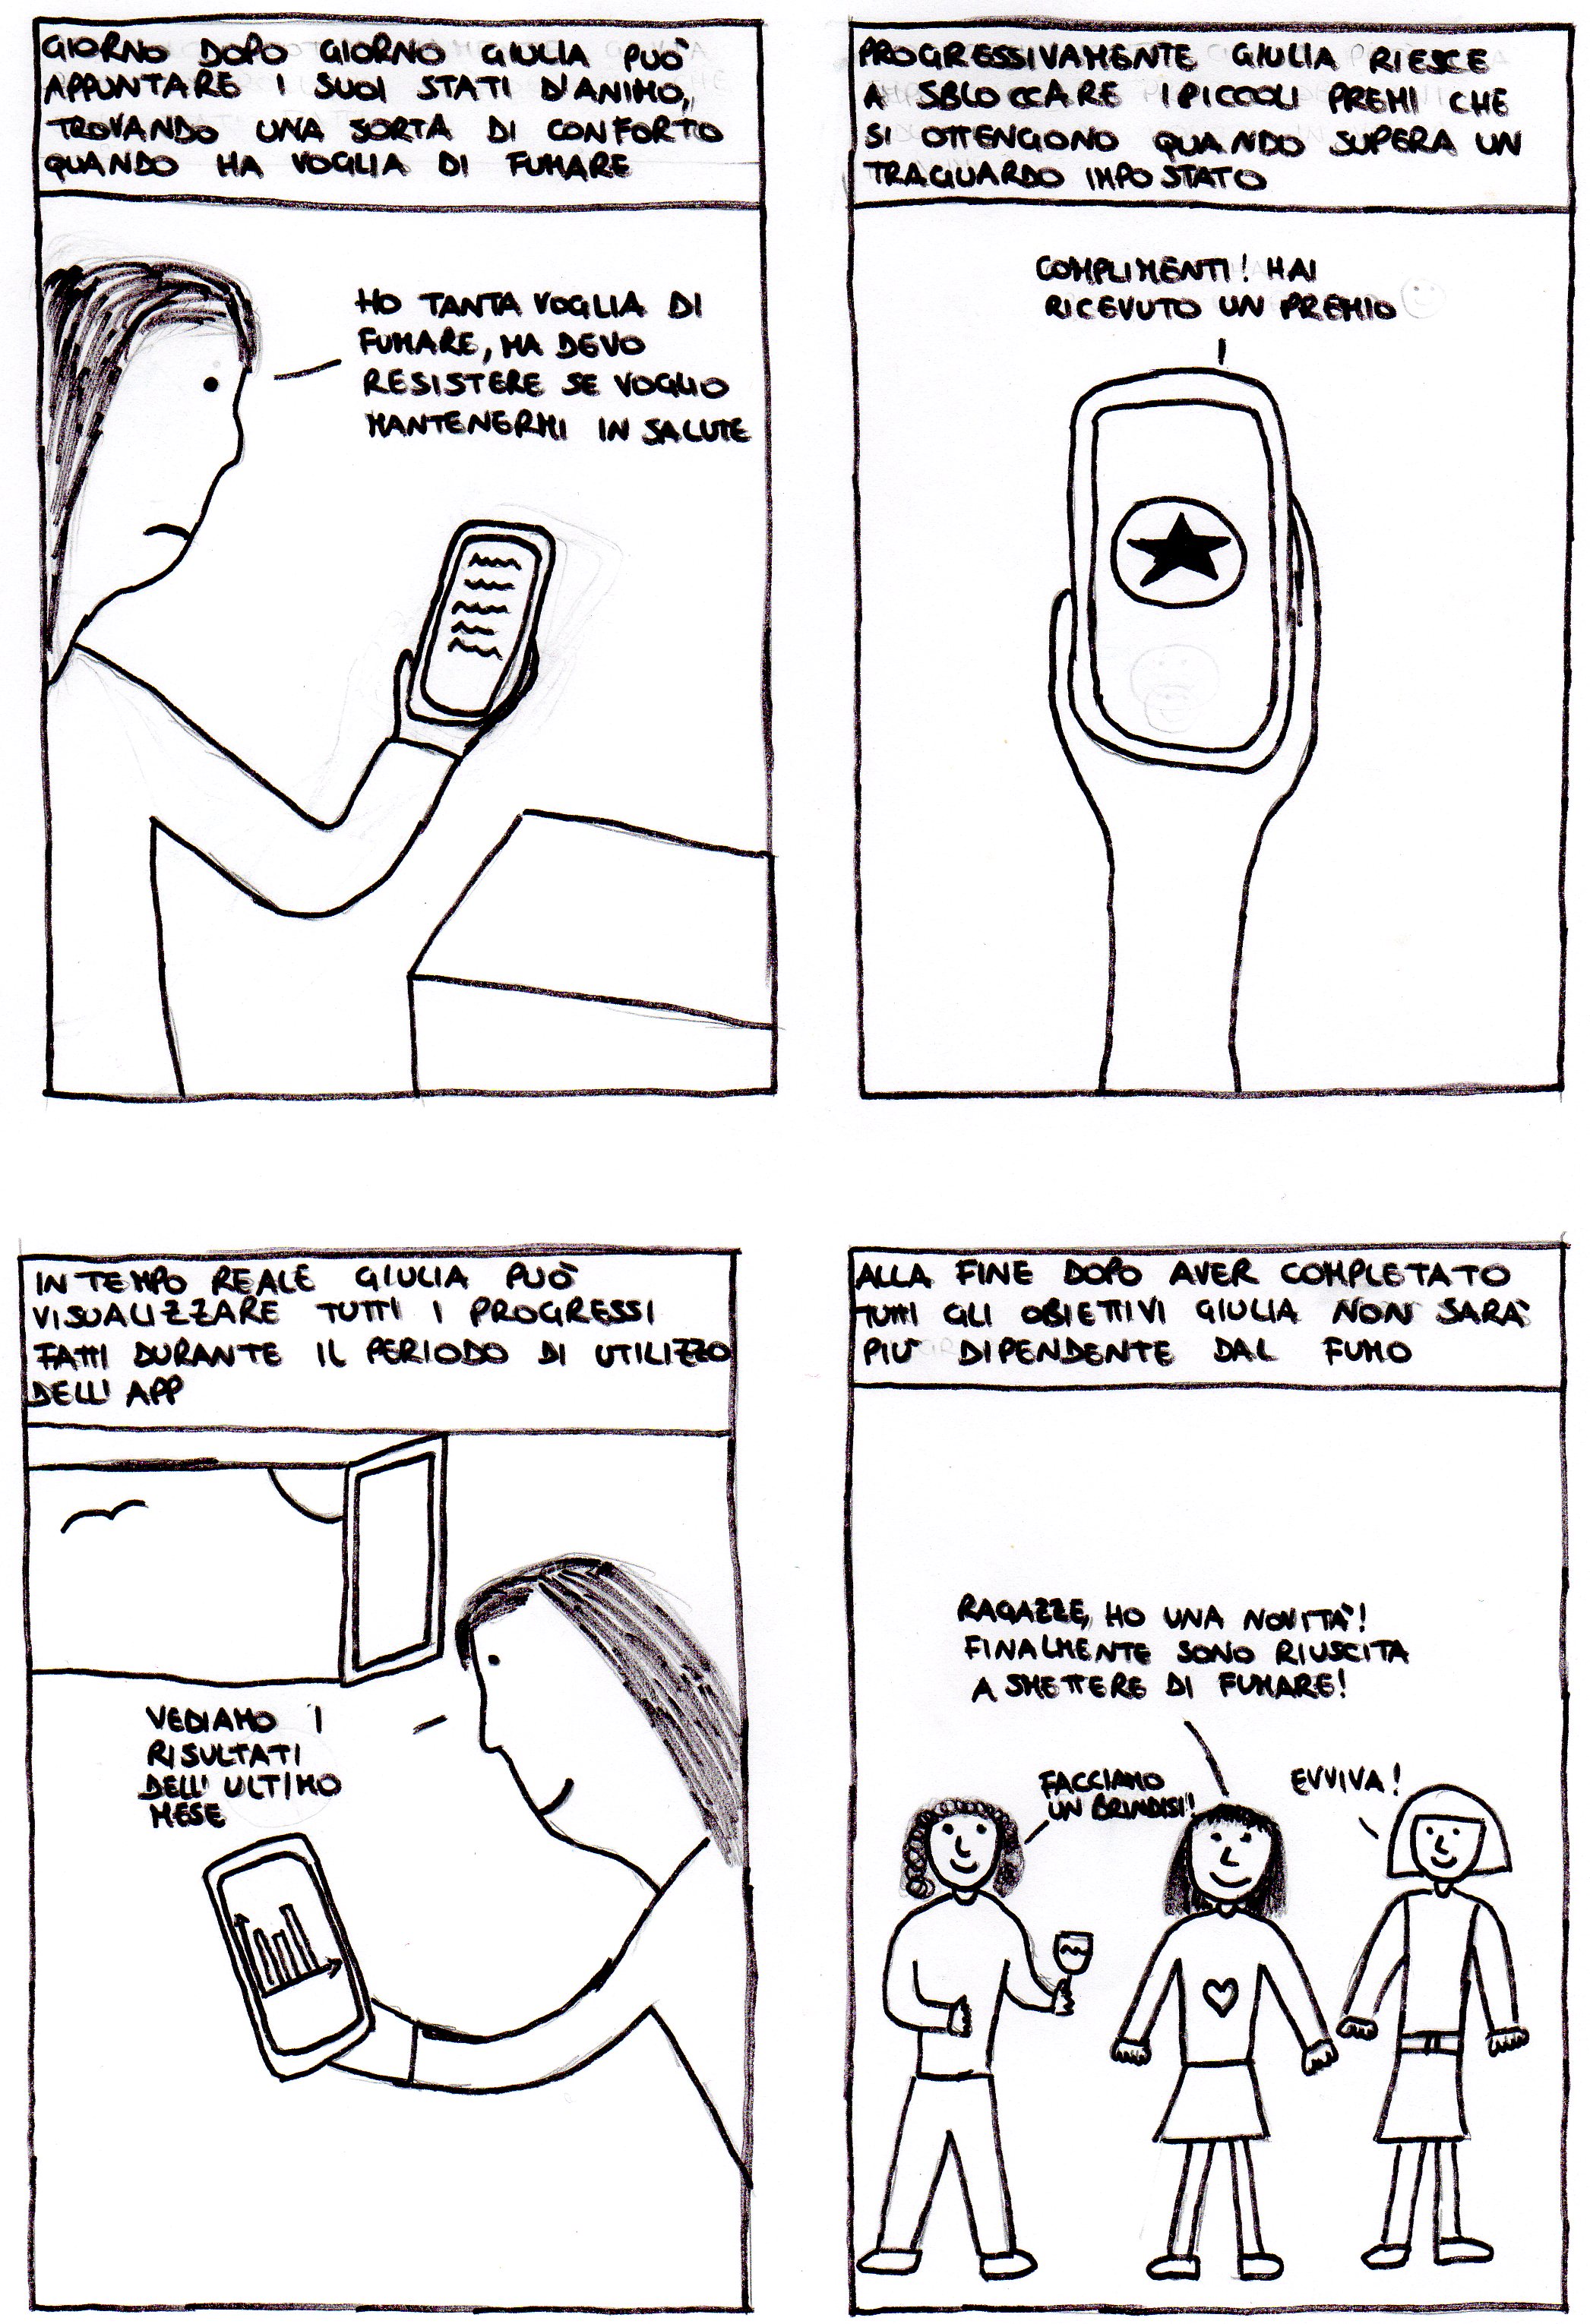 GIORNO DOPO GIORNO GIULIA PUÒ
APPUNTARE I SUOI STATI D'ANIMO,
TROVANDO UNA SORTA DI CONFORTO
QUANDO HA VOGLIA DI FUMARE
HO TANTA VOGLIA DI
FUMARE, MA DEVO
RESISTERE SE VOGLIO
MANTENERMI IN SALUTE
PROGRESSIVAMENTE GIULIA RIESCE
A SBLOCCARE I PICCOLI PREMI CHE
SI OTTENGONO QUANDO SUPERA UN
TRAGUARDO IMPOSTATO
COMPLIMENTI! HAI
RICEVUTO UN PREMIO
IN TEMPO REALE GIULIA PUÒ
VISUALIZZARE TUTTI I PROGRESSI
FATTI DURANTE IL PERIODO DI UTILIZZO
DELL'APP
VEDIAMO I
RISULTATI
DELL'ULTIMO
MESE
ALLA FINE DOPO AVER COMPLETATO
TUTTI GLI OBIETTIVI GIULIA NON SARÀ
PIÙ DIPENDENTE DAL FUMO
RAGAZZE, HO UNA NOVITÀ!
FINALMENTE SONO RIUSCITA
A SMETTERE DI FUMARE!
FACCIAMO
UN BRINDISI!
EVVIVA!